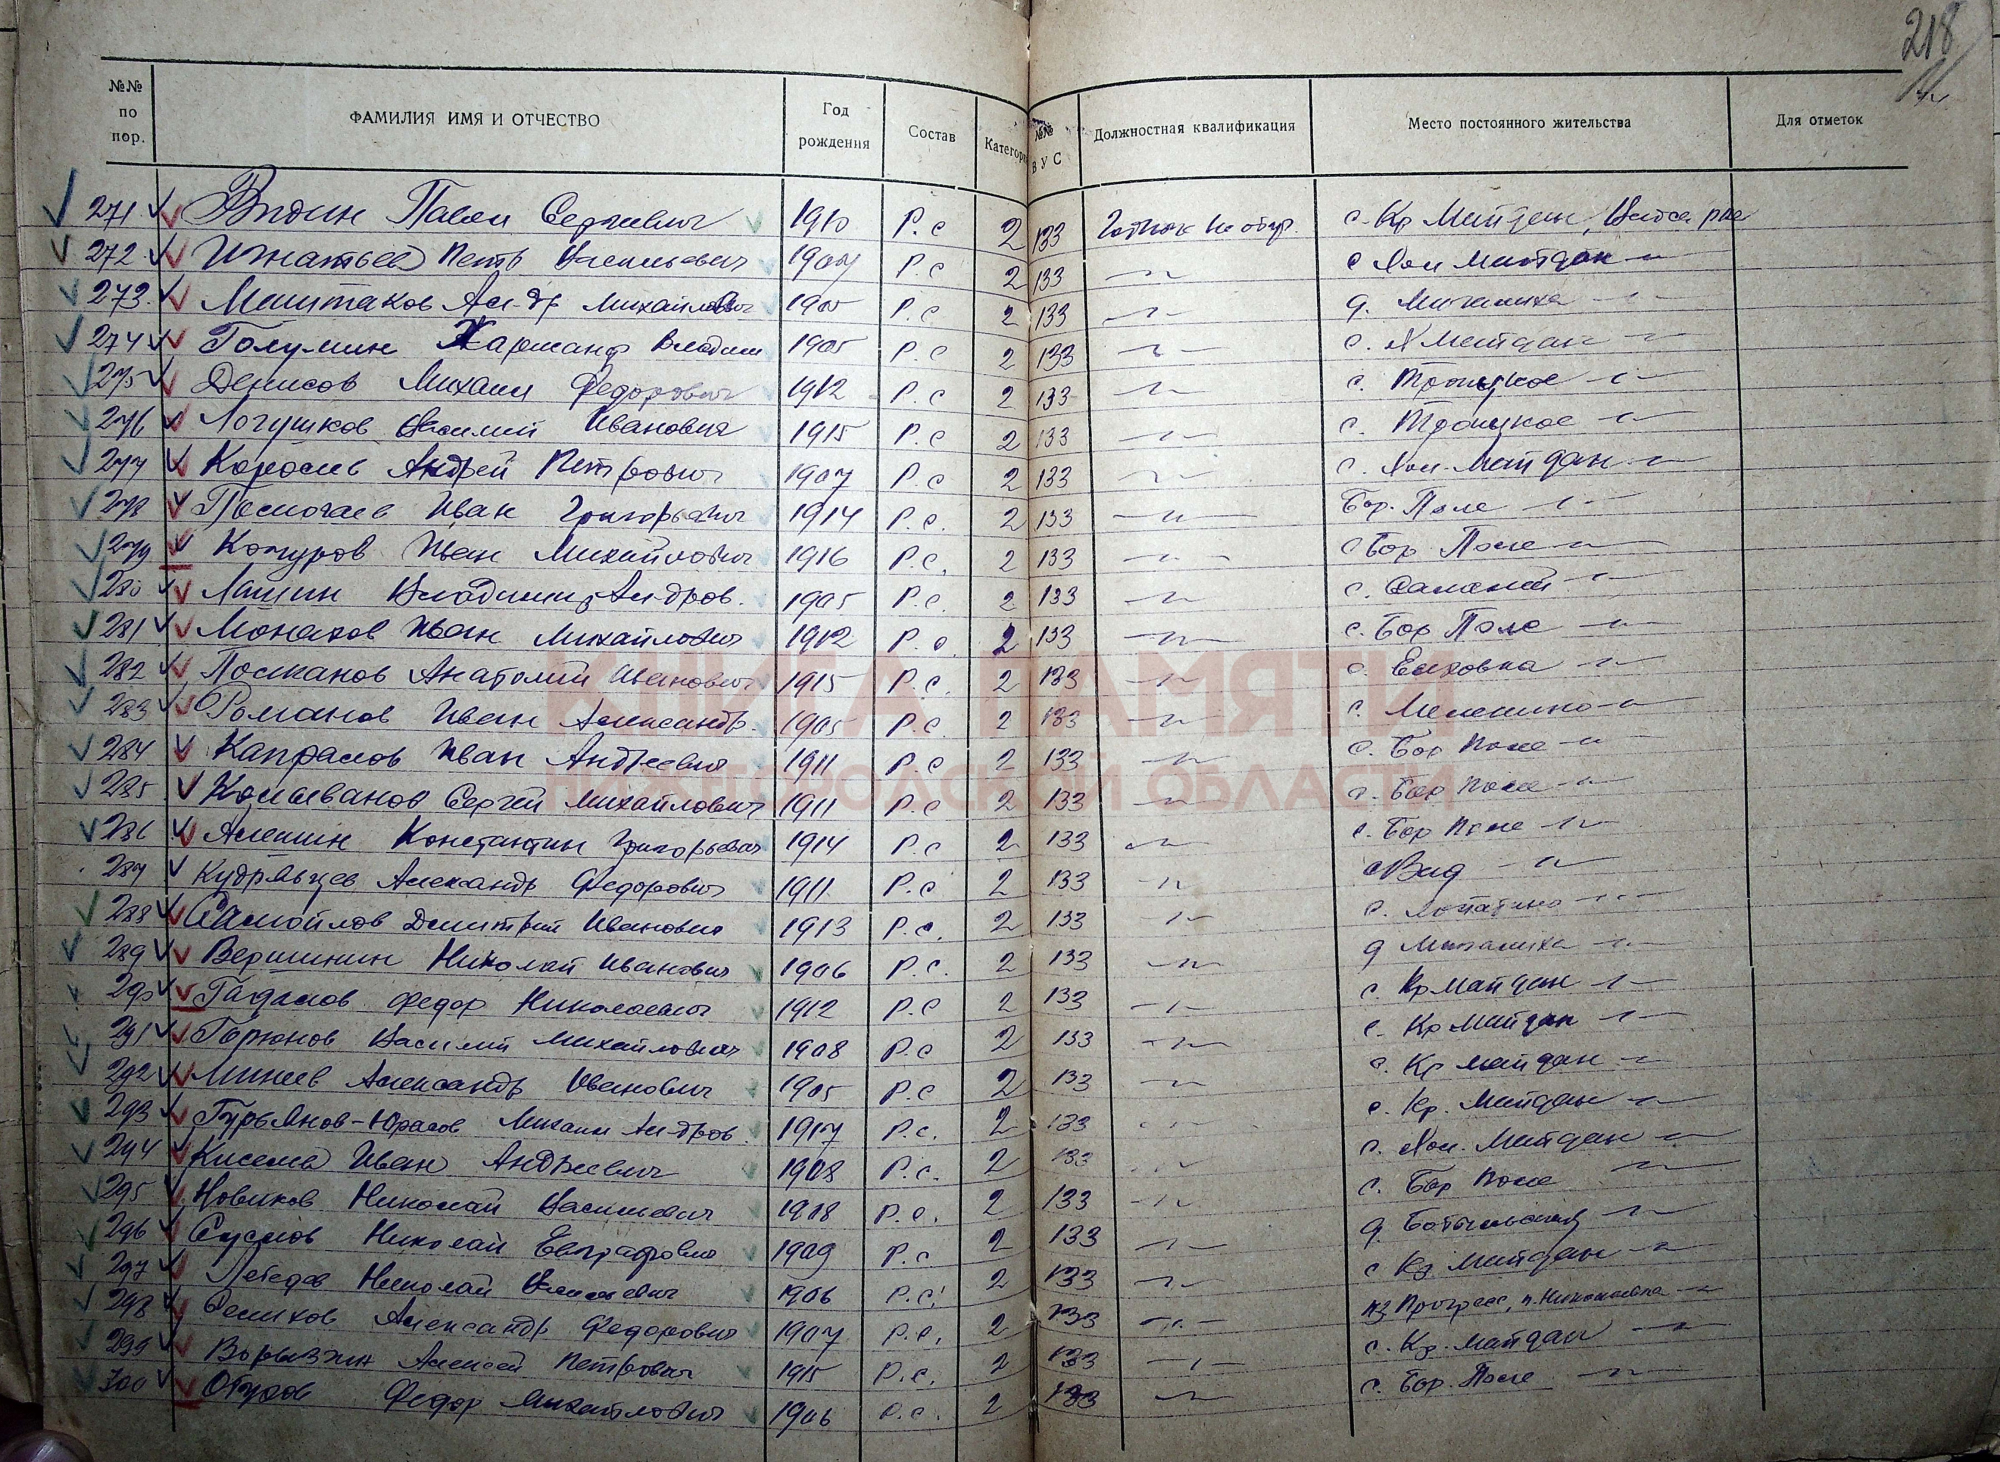 218
№№ по пор. ФАМИЛИЯ ИМЯ И ОТЧЕСТВО Год рождения Состав Категория №№ ВУС Должностная квалификация Место постоянного жительства Для отметок
271 Павел Сергеевич 1910 Р.с 2 133 Годных не обуч. с. Кр Майдан,
272 Игнатьев Петр Васильевич 1907 Р.с 2 133 —〃— с Хол Майдан —〃—
273 Маштаков Ал-др Михайлович 1905 Р.с 2 133 —〃— д. Мигалиха —〃—
274 Голумин 1905 Р.с 2 133 —〃— с. Х Майдан —〃—
275 Денисов Михаил Федорович 1912 Р.с 2 133 —〃— с. Троицкое —〃—
276 Логушков Василий Иванович 1915 Р.с 2 133 —〃— с. Троицкое —〃—
277 Королев Андрей Петрович 1907 Р.с 2 133 —〃— с. Хол. Майдан —〃—
278 Иван Григорьевич 1914 Р.с. 2 133 —〃— Бор. Поле —〃—
279 Кочуров Иван Михайлович 1916 Р.с. 2 133 —〃— с Бор. Поле —〃—
280 Лапин Владимир Ал-дров. 1905 Р.с. 2 133 —〃— с. —〃—
281 Монахов Иван Михайлович 1912 Р.с 2 133 —〃— с. Бор Поле —〃—
282 Анатолий Иванович 1915 Р.с. 2 133 —〃— с. Елховка —〃—
283 Романов Иван Александр. 1905 Р.с. 2 133 —〃— с. —〃—
284 Капралов Иван Андреевич 1911 Р.с 2 133 —〃— с. Бор Поле —〃—
285 Колыванов Сергей Михайлович 1911 Р.с 2 133 —〃— с. Бор Поле —〃—
286 Алешин Константин Григорьевич 1914 Р.с 2 133 —〃— с. Бор Поле —〃—
287 Кудрявцев Александр Федорович 1911 Р.с 2 133 —〃— с Вад —〃—
288 Самойлов Дмитрий Иванович 1913 Р.с. 2 133 —〃— с. Лопатино —〃—
289 Вершинин Николай Иванович 1906 Р.с. 2 133 —〃— д Мигалиха —〃—
290 Гадалов Федор Николаевич 1912 Р.с 2 133 —〃— с. Кр Майдан —〃—
291 Горюнов Василий Михайлович 1908 Р.с 2 133 —〃— с. Кр Майдан —〃—
292 Минеев Александр Иванович 1905 Р.с 2 133 —〃— с. Кр Майдан —〃—
293 Гурьянов-Юрасов Михаил Ал-дров. 1917 Р.с. 2 133 —〃— с. Кр. Майдан —〃—
294 Киселев Иван Андреевич 1908 Р.с. 2 133 —〃— с. Хол. Майдан —〃—
295 Новиков Николай Васильевич 1918 Р.с. 2 133 —〃— с. Бор Поле —〃—
296 Суслов Николай Евграфович 1909 Р.с 2 133 —〃— д. —〃—
297 Лебедев Николай 1906 Р.с. 2 133 —〃— с Кр. Майдан —〃—
298 Александр Федорович 1907 Р.с. 2 133 —〃— Прогресс, п. Николаевка —〃—
299 Алексей Петрович 1915 Р.с. 2 133 —〃— с. Кр. Майдан —〃—
300 Обухов Федор Михайлович 1906 Р.с. 2 133 —〃— с. Бор. Поле —〃—
КНИГА ПАМЯТИ
НИЖЕГОРОДСКОЙ ОБЛАСТИ